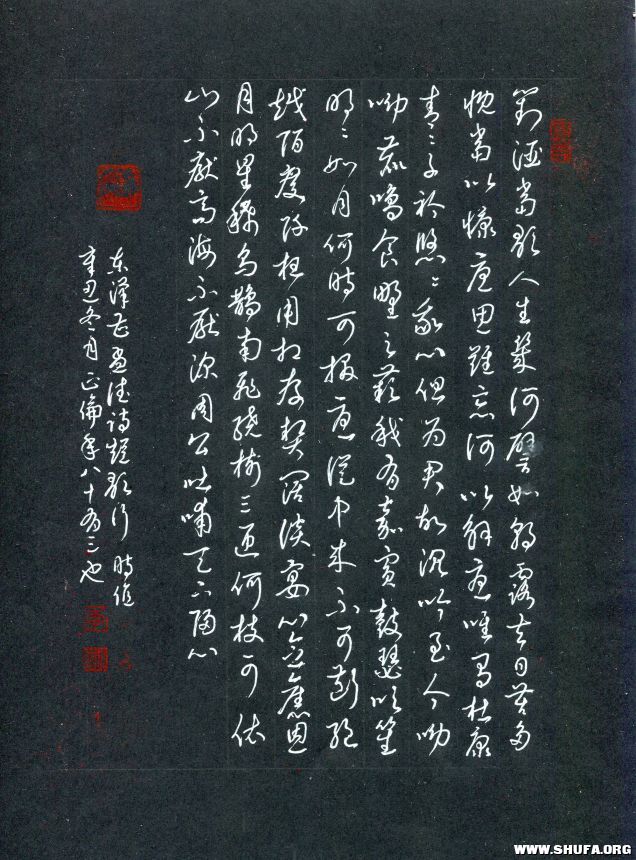 對酒當歌人生幾何譬如朝露去日苦多
慨當以慷憂思難忘何以解憂唯有杜康
青々子衿悠々我心但為君故沉吟至今呦
呦鹿鳴食野之苹我有嘉賓鼓瑟吹笙
明々如月何時可掇憂從中來不可斷絕
越陌度阡枉用相存契闊談宴心念舊恩
月明星稀烏鵲南飛繞樹三匝何枝可依
山不厭高海不厭深周公吐哺天下歸心
东漢曹孟德詩短歌行 時值
辛丑冬月 正倫年八十有三也
WWW.SHUFA.ORG